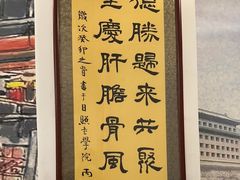 德勝歸來共聚
慶肝膽骨風
歲次癸卯之春書于日照學院 丙